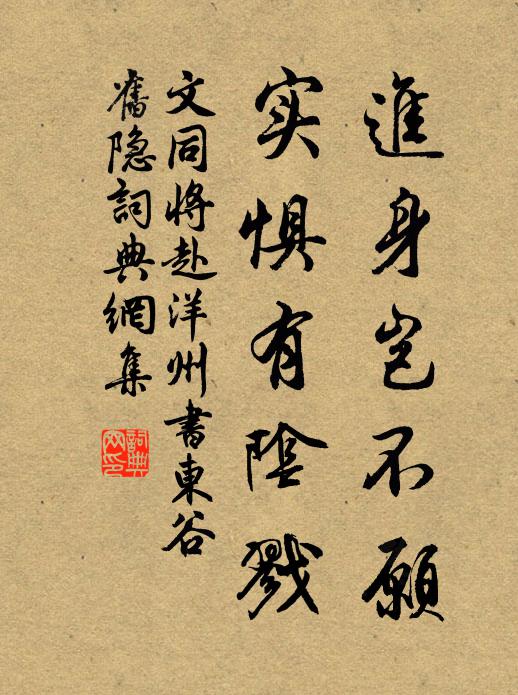 進身岂不願
实惧有陰戮
文同将赴洋州書東谷
舊隐詞典網集
詞典網印